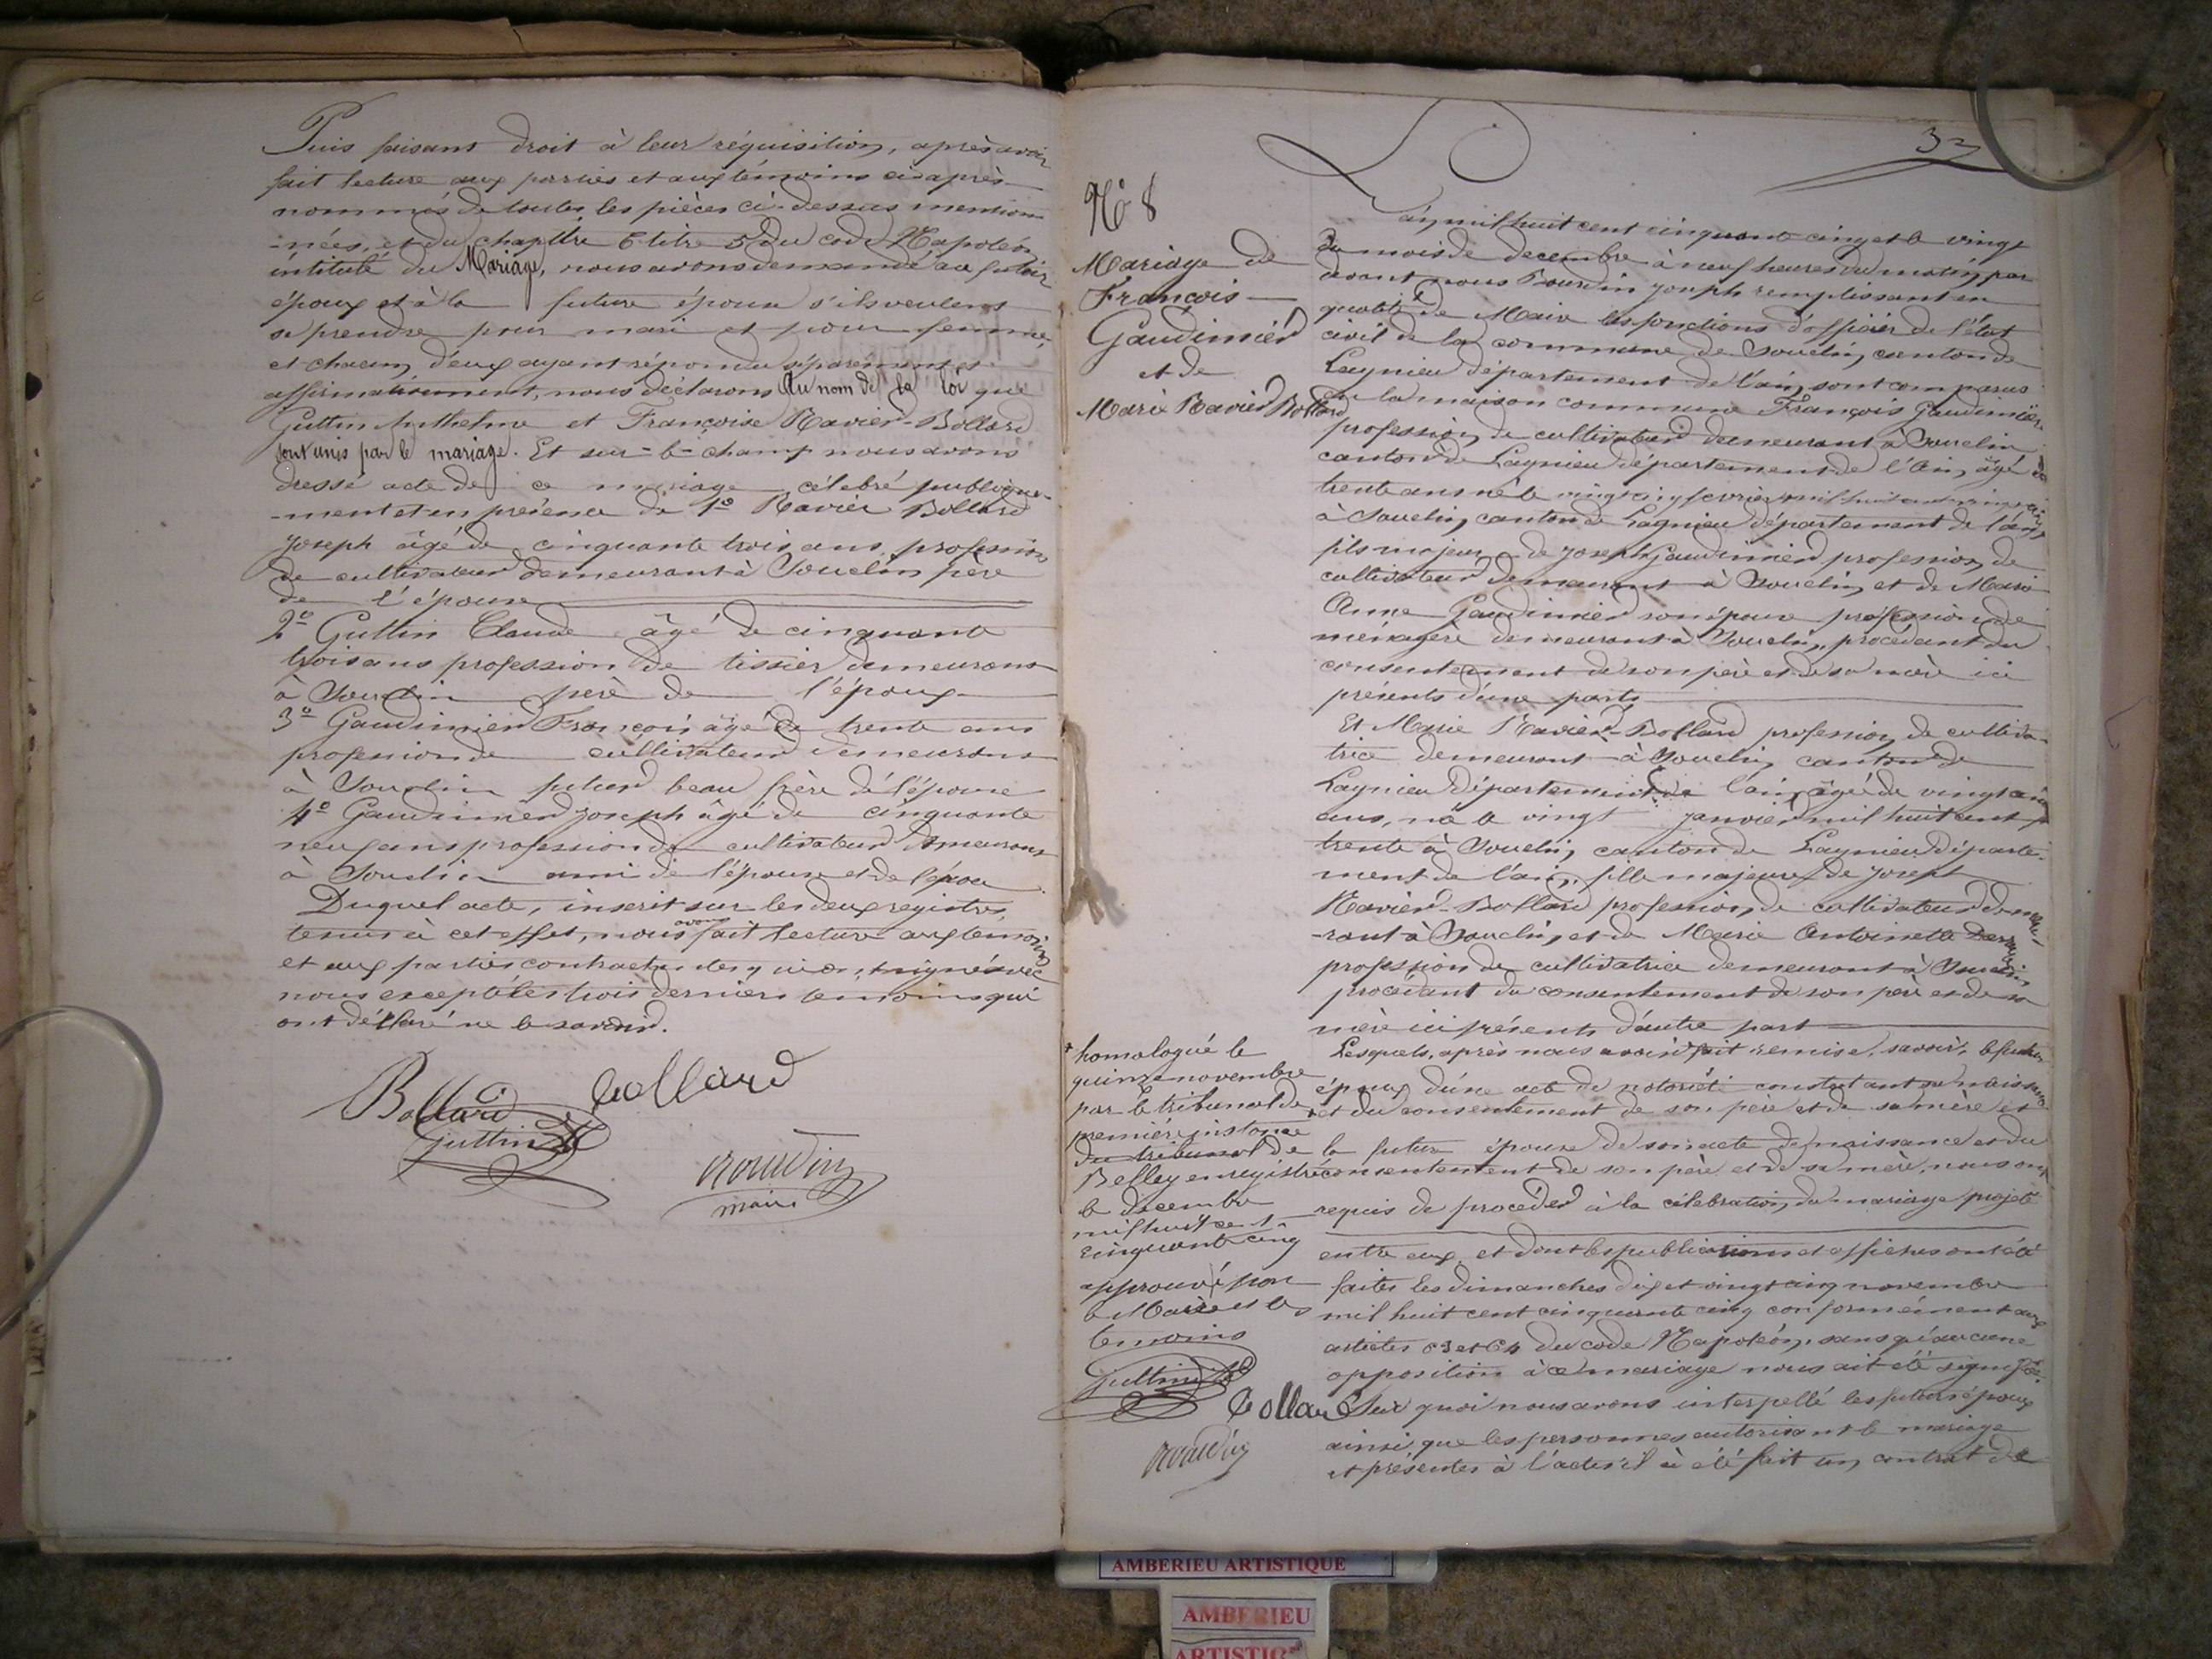 Puis faisant droit à leur réquisition, après avoir
fait lecture aux parties et aux témoins ci-après
nommés de toutes les pièces ci-dessus mention-
-nées, et du chapitre 6 titre 5 du code Napoléon
intitulé du Mariage, nous avons demandé au futur
époux et à la future épouse s'ils veulent
se prendre pour mari et pour femme,
et chacun d'eux ayant répondu séparément et
affirmativement, nous déclarons Au nom de la loi que
Guttin Anthelme et Françoise Ravier-Bollard
sont unis par le mariage. Et sur-le-champ nous avons
dressé acte de ce mariage célébré publique-
-ment et en présence de 1º Ravier Bollard
Joseph âgé de cinquante trois ans, profession
de cultivateur demeurant à Souclin père
de l'épouse
2º Guttin Claude âgé de cinquante
trois ans profession de tissier demeurant
à Souclin père de l'époux
3º Gaudimier François âgé de trente ans
profession de cultivateur demeurant
à Souclin futur beau frère de l'épouse
4º Gaudimier Joseph âgé de cinquante
neuf ans profession de cultivateur demeurant
à Souclin ami de l'épouse et de l'époux
Duquel acte, inscrit sur les deux registres
tenus à cet effet, nous avons fait lecture aux témoins
et aux parties contractantes qui ont signé avec
nous excepté les trois derniers témoins qui
ont déclaré ne le savoir.
Bollard Bollard
guttin
Rourdin
maire
32
Nº 8
Mariage de
François
Gaudimier
et de
Marie Ravier Bollard
L'an mil huit cent cinquante cinq et le vingt
du mois de decembre à neuf heures du matin, par
devant nous Rourdin Joseph remplissant en
qualité de Maire les fonctions d'officier de l'état
civil de la commune de Souclin, canton de
Lagnieu département de l'ain, sont comparus
en la maison commune François Gaudimier
profession de cultivateur demeurant à Souclin
canton de Lagnieu département de l'Ain, âgé de
trente ans né le vingt cinq fevrier mil huit cent vingt cinq
à Souclin, canton de Lagnieu département de l'ain,
fils majeur de Joseph Gaudimier profession de
cultivateur demeurant à Souclin et de Marie
Anne Gaudimier son épouse profession de
ménagère demeurant à Souclin, procédant du
consentement de son père et de sa mère ici
présents d'une part
Et Marie Ravier-Bollard profession de cultiva-
trice demeurant à Souclin, canton de
Lagnieu département de l'ain, âgée de vingt cinq
ans, née le vingt janvier mil huit cent
trente à Souclin, canton de Lagnieu départe-
ment de l'ain, fille majeure de Joseph
Ravier-Bollard profession de cultivateur demeu-
-rant à Souclin, et de Marie Antoinette
profession de cultivatrice demeurant à Souclin
procédant du consentement de son père et de sa
mère ici présents d'autre part
Lesquels, après nous avoir fait remise, savoir, le futur
époux d'une acte de notoriété constatant sa naissance
+ et du consentement de son père et de sa mère et
la future épouse de son acte de naissance et du
consentement de son père et de sa mère, nous ont
requis de procéder à la célébration du mariage projeté
entre eux et dont les publications et affiches ont été
faites les dimanches dix et vingt cinq novembre
mil huit cent cinquante cinq conformément aux
articles 63 et 64 du code Napoléon, sans qu'aucune
opposition à ce mariage nous ait été signifiée.
Sur quoi nous avons interpellé les futurs époux
ainsi que les personnes autorisant le mariage
et présentes à l'acte s'il a été fait un contrat de
+ homologué le
quinze novembre
par le tribunal de
première instance
du tribunal de
Belley enregistré
le decembre
mil huit cent
cinquante cinq
approuvé par
le Maire et les
temoins
guttin
Bollard
Rourdin
AMBERIEU ARTISTIQUE
AMBERIEU
ARTISTIQ